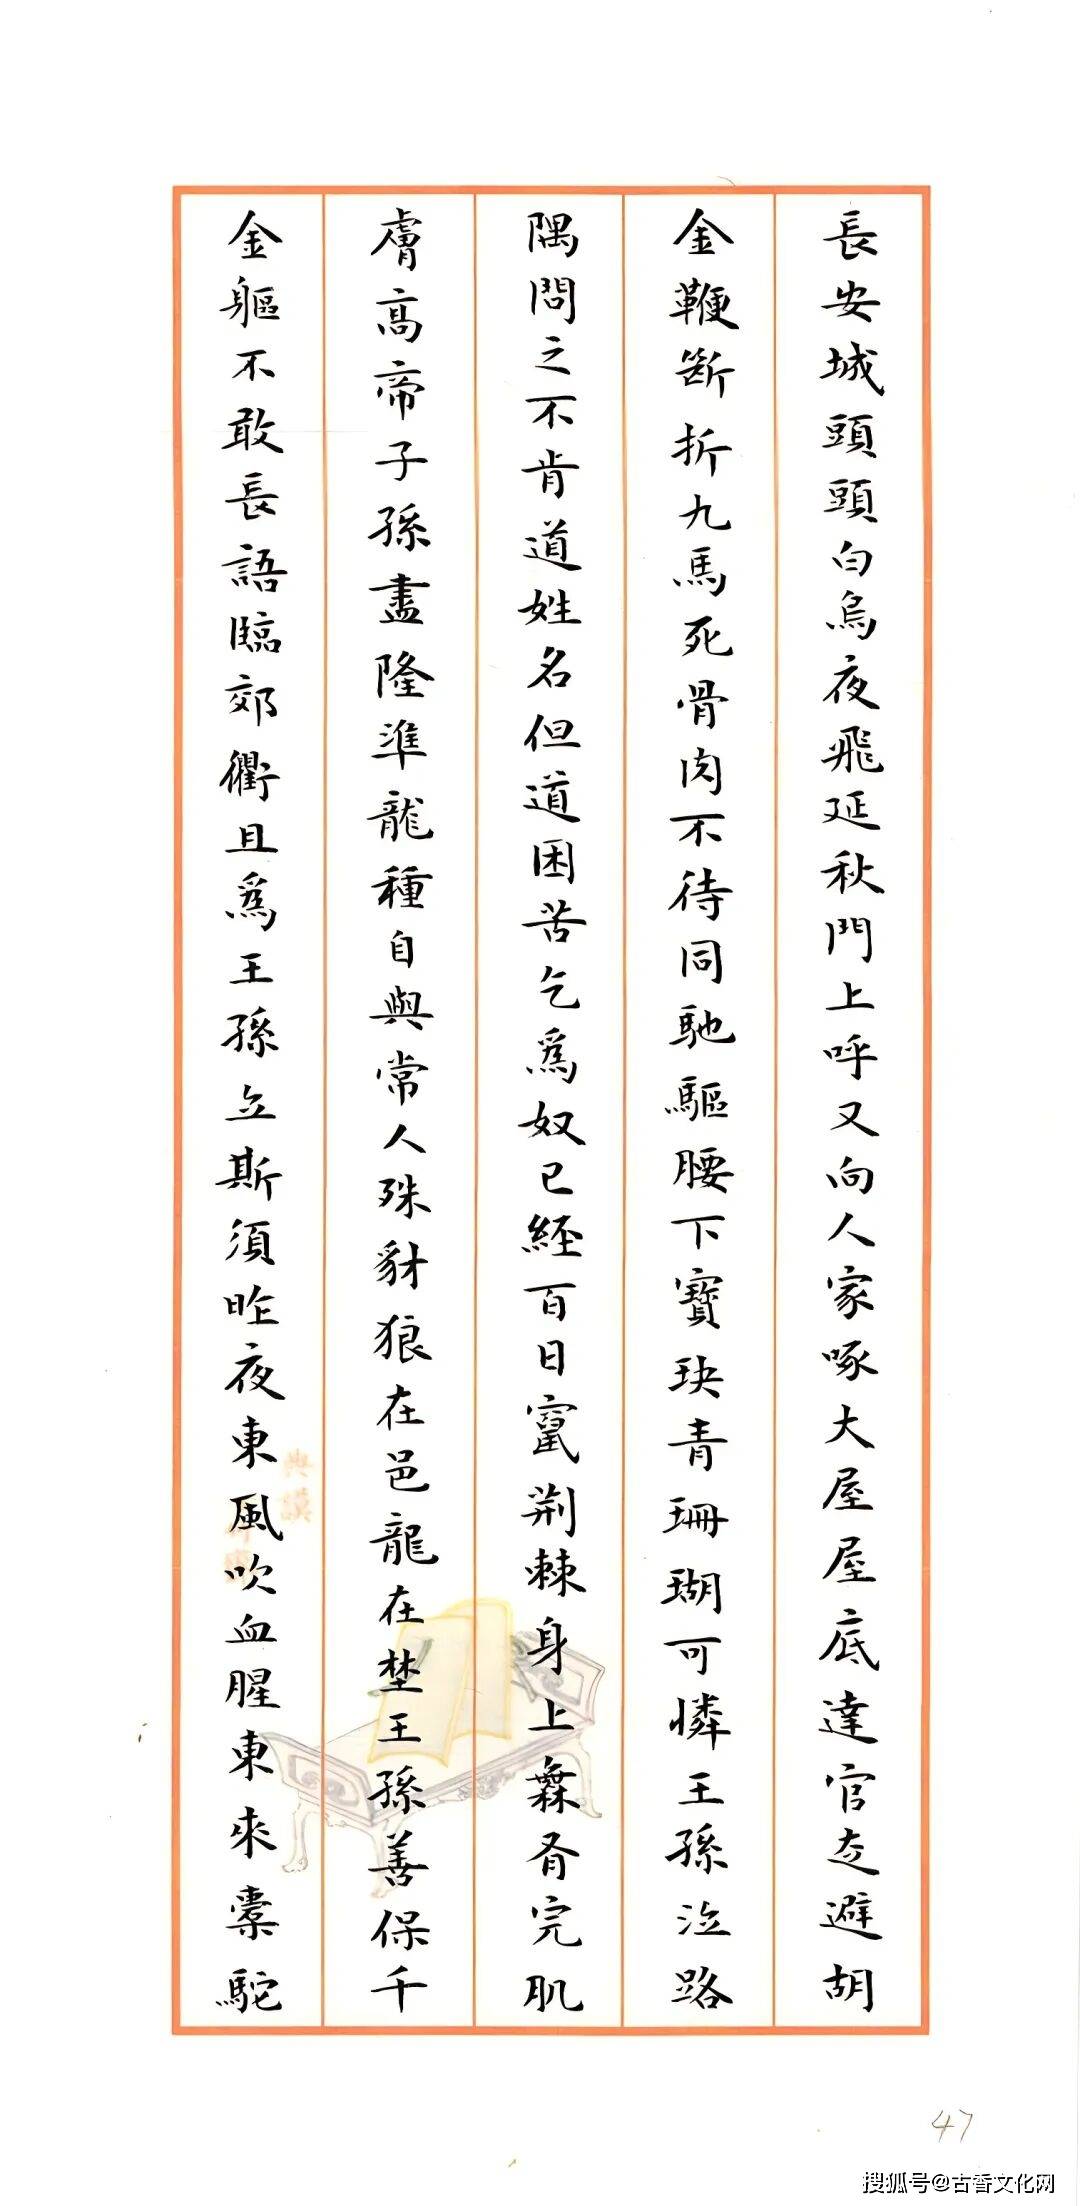 長安城頭頭白烏夜飛延秋門上呼又向人家啄大屋屋底達官走避胡
金鞭斷折九馬死骨肉不待同馳驅腰下寶玦青珊瑚可憐王孫泣路
隅問之不肯道姓名但道困苦乞爲奴已經百日竄荆棘身上無有完肌
膚高帝子孫盡隆準龍種自與常人殊豺狼在邑龍在埜王孫善保千
金軀不敢長語臨郊衢且爲王孫立斯須昨夜東風吹血腥東來橐駝
47
搜狐号@古香文化网